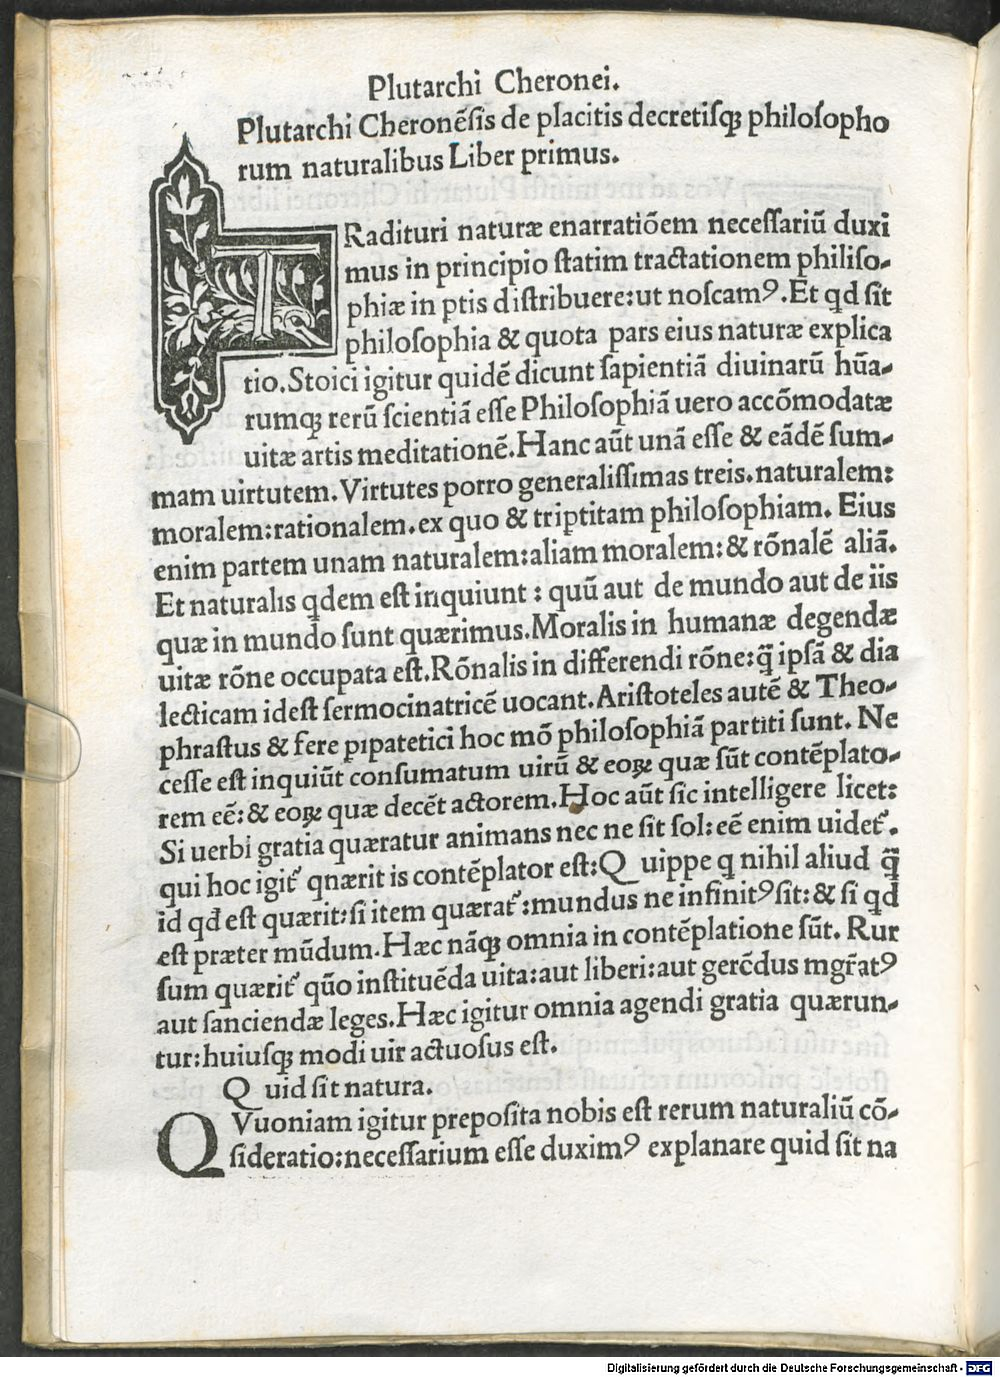 Plutarchi Cheronei.
Plutarchi Cheronẽſis de placitis decretiſqꝫ philoſopho
rum naturalibus Liber primus.
TRadituri naturæ enarratiõem neceſſariũ duxi
mus in principio ſtatim tractationem philiſo-
phiæ in ꝑtis diſtribuere:ut noſcamꝰ.Et qd ſit
philoſophia & quota pars eius naturæ explica
tio.Stoici igitur quidẽ dicunt ſapientiã diuinarũ hũa-
rumqꝫ rerũ ſcientiã eſſe Philoſophiã uero accõmodatæ
uitæ artis meditationẽ.Hanc aũt unã eſſe & eãdẽ ſum-
mam uirtutem.Virtutes porro generaliſſimas treis.naturalem:
moralem:rationalem.ex quo & triꝑtitam philoſophiam. Eius
enim partem unam naturalem:aliam moralem:& rõnalẽ aliã.
Et naturalis qdem eſt inquiunt : quũ aut de mundo aut de iis
quæ in mundo ſunt quærimus.Moralis in humanæ degendæ
uitæ rõne occupata eſt.Rõnalis in differendi rõne:q̃ ipſã & dia
lecticam ideſt ſermocinatricẽ uocant.Ariſtoteles autẽ & Theo-
phraſtus & fere pipatetici hoc mõ philoſophiã partiti ſunt. Ne
ceſſe eſt inquiũt conſumatum uirũ & eoꝝ quæ ſũt contẽplato-
rem eẽ:& eoꝝ quæ decẽt actorem.Hoc aũt ſic intelligere licet:
Si uerbi gratia quæratur animans nec ne ſit ſol:eẽ enim uidet᷒.
qui hoc igit᷒ qnærit is contẽplator eſt:Q uippe q nihil aliud q̃
id qđ eſt quærit:ſi item quærat᷒:mundus ne infinitꝰ ſit:& ſi qd
eſt præter mũdum.Hæc nãqꝫ omnia in contẽplatione ſũt. Rur
ſum quærit᷒ qũo inſtituẽda uita:aut liberi:aut gerẽdus mgr̃atꝰ
aut ſanciendæ leges.Hæc igitur omnia agendi gratia quærun-
tur:huiuſqꝫ modi uir actuoſus eſt.
Q uid ſit natura.
QVuoniam igitur prepoſita nobis eſt rerum naturaliũ cõ-
ſideratio:neceſſarium eſſe duximꝰ explanare quid ſit na
Digitalisierung gefördert durch die Deutsche Forschungsgemeinschaft - DFG